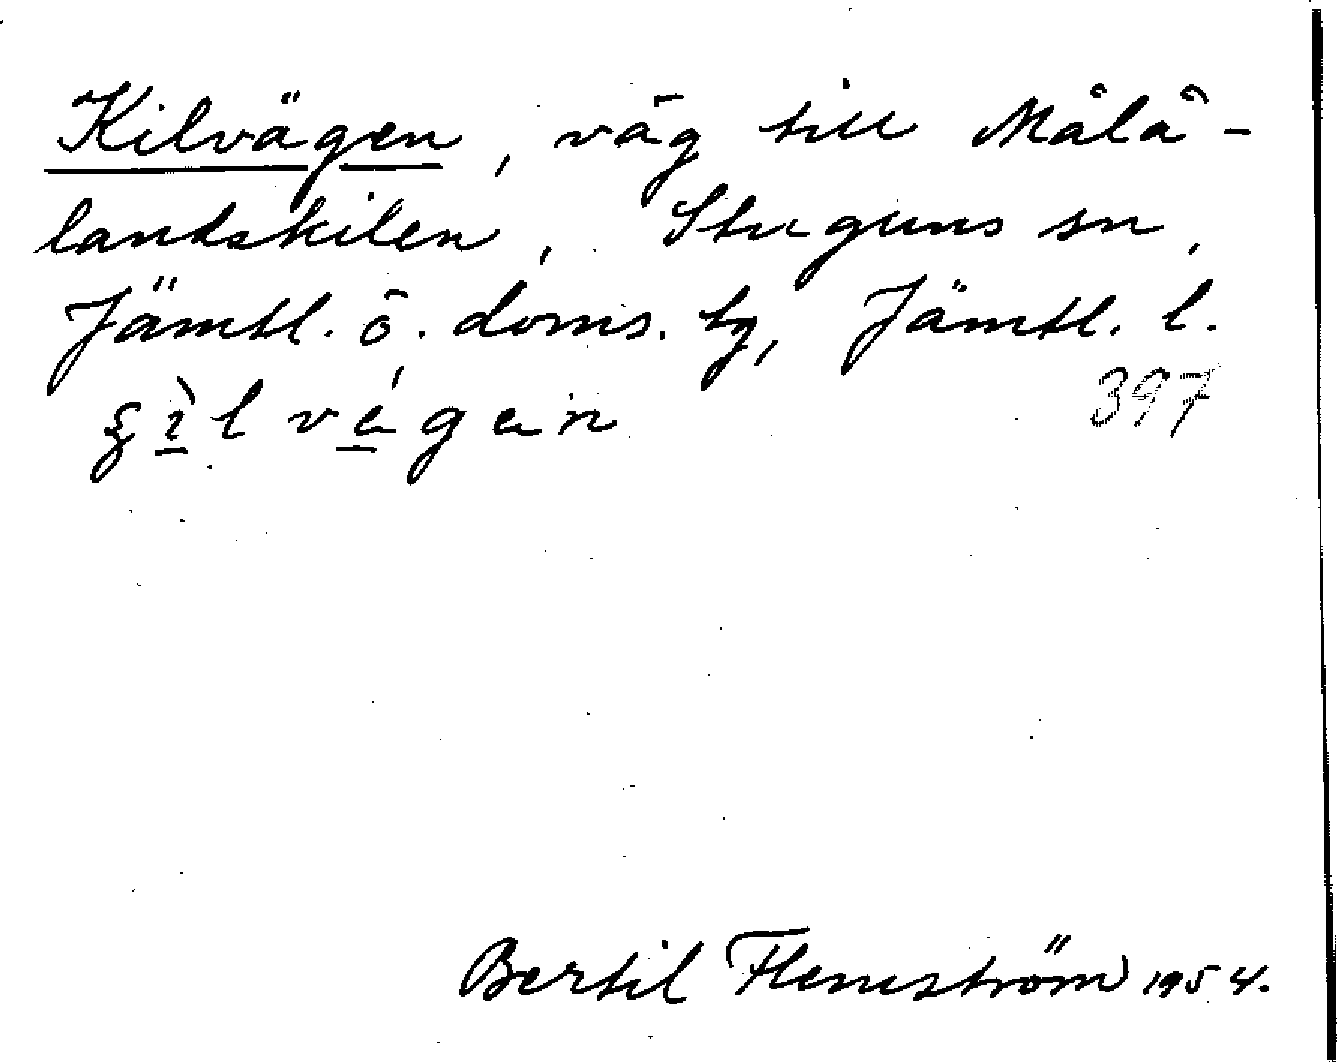 Kilvägen, väg till Målå-
landskilen, Stuguns sn,
Jämtl. ö. doms. tg, Jämtl. l.
ξì̱lvé̱gen 397
Bertil Flemström 1954.